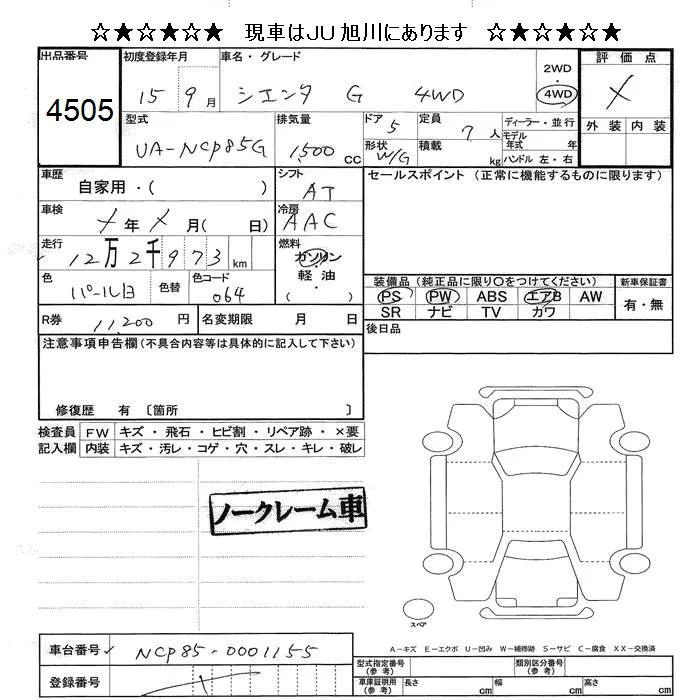 ☆★☆★☆★ 現車はJU旭川にあります ☆★☆★☆★
出品番号 初度登録年月 車名・グレード 評価点
4505 15 9月 シエンタ G 4WD 2WD 4WD ✓
型式 排気量 ドア 5 定員 7人 ディーラー・並行 外装 内装
UA-NCP85G 1,500cc 形状 W/G 積載 kg モデル年式 年
ハンドル 左・右
車歴 自家用・( ) シフト AT セールスポイント(正常に機能するものに限ります)
車検 ✓年✓月( 日) 冷房 AAC
走行 12万2千973km 燃料 ガソリン・軽油 ( )
色 パール白 色替 色コード 064 装備品(純正品に限り〇をつけてください) 新車保証書
PS PW ABS エアB AW 有・無
R券 11,200円 名変期限 月 日 SR ナビ TV カワ
後日品
注意事項申告欄(不具合内容等は具体的に記入して下さい)
修復歴 有 〔箇所 〕
検査員 FW キズ・飛石・ヒビ割・リペア跡・×要
記入欄 内装 キズ・汚レ・コゲ・穴・スレ・キレ・破レ
ノークレーム車
スペア
A-キズ E-エクボ U-凹み W-補修跡 S-サビ C-腐食 XX-交換済
車台番号 ✓ NCP85-0001155 型式指定番号(参考) 類別区分番号(参考)
登録番号 車庫証明用(参考) 長さ cm 幅 cm 高さ cm